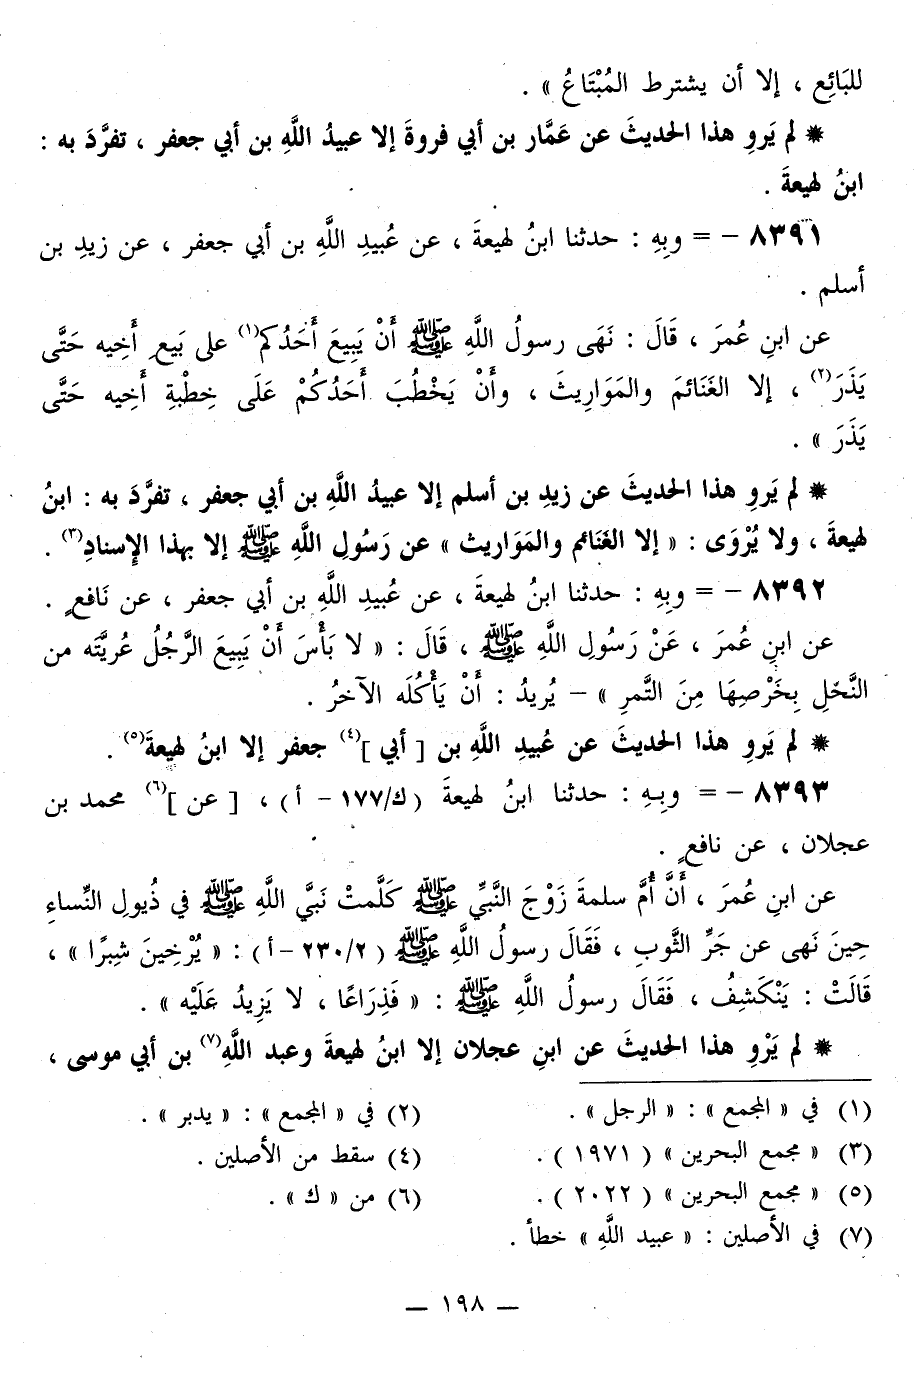 للبَائِع ، إلا أن يشترط المُبْتَاعُ » .
* لم يَروِ هذا الحديثَ عن عَمَّار بن أبي فروةَ إلا عبيدُ اللَّهِ بن أبي جعفر ، تفرَّدَ به :
ابنُ لهيعةَ .
٨٣٩١ – = وبِهِ : حدثنا ابنُ لهيعةَ ، عن عُبيدِ اللَّهِ بن أبي جعفر ، عن زيدِ بن
أسلم .
عن ابنِ عُمرَ ، قَالَ : نَهَى رسولُ اللَّهِ ﷺ أَنْ يَبِيعَ أَحَدُكم(١) على بَيع أَخِيه حَتَّى
يَذَرَ(٢) ، إلا الغَنَائمَ والمَوَارِيثَ ، وأَنْ يَخْطُبَ أَحَدُكُمْ عَلَى خِطْبةِ أَخِيه حَتَّى
يَذَرَ » .
* لم يَروِ هذا الحديثَ عن زيدِ بن أسلم إلا عبيدُ اللَّهِ بن أبي جعفر ، تفرَّدَ به : ابنُ
لهيعةَ ، ولا يُرْوَى : « إلا الغَنَائم والمَوَاريث » عن رَسُولِ اللَّهِ ﷺ إلا بهذا الإِسنادِ(٣) .
٨٣٩٢ – = وبِهِ : حدثنا ابنُ لهيعةَ ، عن عُبيدِ اللَّهِ بن أبي جعفر ، عن نَافعٍ .
عن ابنِ عُمرَ ، عَنْ رَسُولِ اللَّهِ ﷺ ، قَالَ : « لا بَأْسَ أَنْ يَبِيعَ الرَّجُلُ عُريَّته من
النَّخْلِ بِخَرْصِهَا مِنَ التَّمرِ » – يُريدُ : أَنْ يَأْكُلَه الآخرُ .
* لم يَروِ هذا الحديثَ عن عُبيدِ اللَّهِ بن [ أبي ](٤) جعفر إلا ابنُ لهيعةَ(٥) .
٨٣٩٣ – = وبِهِ : حدثنا ابنُ لهيعةَ (ك/١٧٧ – أ) ، [ عن ](٦) محمد بن
عجلان ، عن نافعٍ .
عن ابنِ عُمرَ ، أَنَّ أُمَّ سلمةَ زَوْجَ النَّبيِّ ﷺ كَلَّمتْ نَبيَّ اللَّهِ ﷺ في ذُيولِ النِّساءِ
حِينَ نَهى عن جَرِّ الثَّوبِ ، فَقَالَ رسولُ اللَّهِ ﷺ (٢٣٠/٢ –أ) : « يُرْخِينَ شِبرًا » ،
قَالَتْ : يَنْكَشِفُ ، فَقَالَ رسولُ اللَّهِ ﷺ : « فَذِرَاعًا ، لا يَزِيدُ عَلَيْه » .
* لم يَرْوِ هذا الحديثَ عن ابنِ عجلان إلا ابنُ لهيعةَ وعبد اللَّهِ(٧) بن أبي موسى ،
(١) في « المجمع » : « الرجل » .
(٢) في « المجمع » : « يدبر » .
(٣) « مجمع البحرين » ( ١٩٧١ ) .
(٤) سقط من الأصلين .
(٥) « مجمع البحرين » ( ٢٠٢٢ ) .
(٦) من « ك » .
(٧) في الأصلين : « عبيد اللَّهِ » خطأ .
— ١٩٨ —